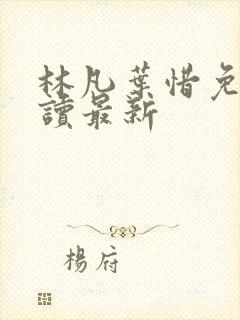 林凡葉惜免
讀最新
楊府